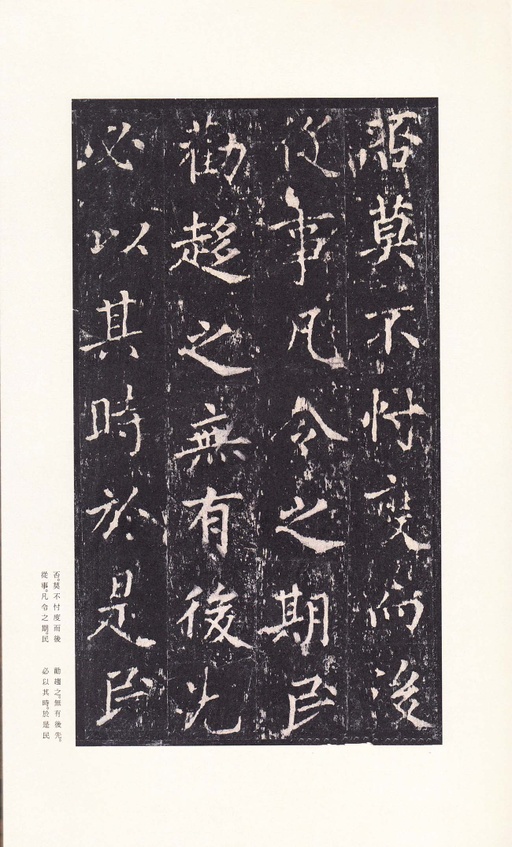 否莫不忖度而後
從事凡令之期民
勸趍之無有後先
必以其時於是民
否。莫不忖度而後
從事。凡令之期。民
勸趨之。無有後先。
必以其時。於是民